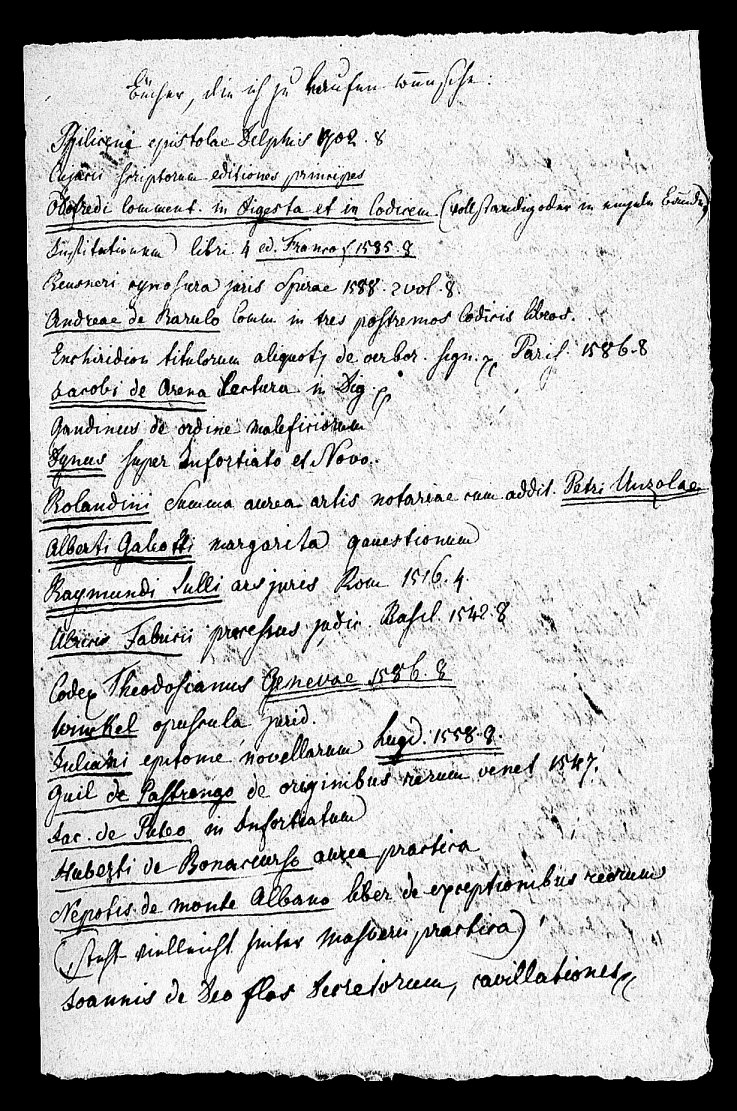 Bücher, die ich zu kaufen wünsche:
epistolae Delphis 1702. 8
Cujacii scriptorum editiones principes
Odofredi Comment. in Digesta et in Codicem. (vollständig oder in einzeln Bänden)
Institutionum libri 4 ed. Francof. 1585. 8
Reusneri cynosura juris Spirae 1588. 2 vol. 8.
Andreae de Barulo Comm in tres postremos Codicis libros.
Enchiridion titulorum aliquot, de verbor. sign. Paris. 1586. 8
Jacobi de Arena Lectura in Dig.
Gandinus de ordine maleficiorum
Dynus super Infortiato et Novo.
Rolandini Summa aurea artis notariae cum addit. Petri Unzolae
Alberti Galeotti margarita quaestionum
Raymundi Lulli ars juris Rom 1516. 4.
Fabricii processus judic. Basil. 1542. 8
Codex Theodosianus Genevae 1586. 8
Winckel opuscula jurid.
Juliani epitome novellarum Lugd. 1558. 8.
Guil de Pastrengo de originibus rerum venet 1547.
Jac. de Puteo in Infortiatum
Huberti de Bonacurso aurea practica
Nepotis de monte Albano liber de exceptionibus reorum
(steht vielleicht hinter practica)
Joannis de Deo flos Decretorum, cavillationes